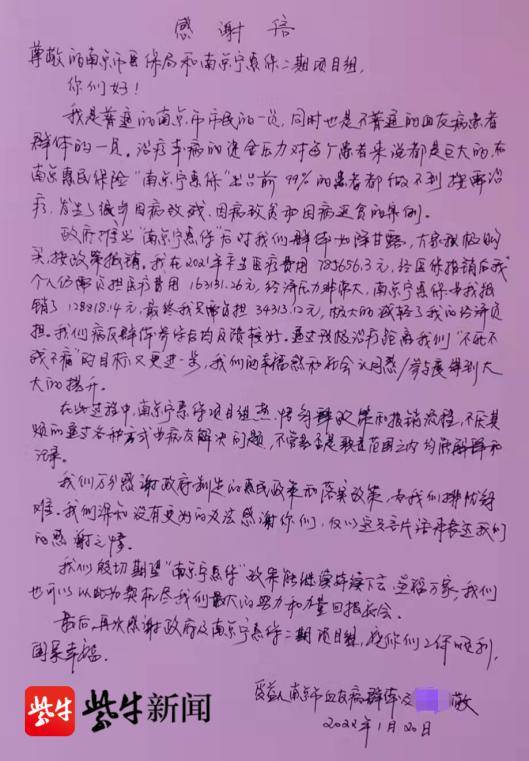 感谢信
尊敬的南京市医保局和南京宁惠保二期项目组,
你们好!
我是普通的南京市市民的一员,同时也是不普通的血友病患者
群体的一员。治疗本病的资金压力对每个患者来说都是巨大的,在
南京惠民保险“南京宁惠保”出台前99%的患者都做不到按需治
疗,发生了很多因病致残、因病致贫和因病返贫的案例。
政府推出“南京宁惠保”后对我们群体如降甘露,大家积极购
买,按政策报销。我在2021年产生医疗费用785656.3元,经医保报销后我
个人仍需负担医疗费用163131.26元,经济压力非常大,南京宁惠保帮我报
销了128818.14元,最终我只需负担34313.12元,极大的减轻了我的经济负
担。我们病友群体参保后均反馈极好。通过积极治疗距离我们“不死不
残不痛”的目标又更进一步,我们的幸福感和社会认同感/参与度得到大
大的提升。
在此过程中,南京宁惠保项目组热情的解政策和报销流程,不厌其
烦的通过各种方式为病友解决问题,不管是否是职责范围之内均能解释和
记录。
我们万分感谢政府制定的惠民政策和落实政策,为我们排忧解
难。我们深知没有更好的办法感谢你们,仅以这只言片语来表达我们
的感谢之情。
我们殷切期望“南京宁惠保”政策能继续持续下去,造福万家,我们
也可以以此为契机尽我们最大的努力和力量回报社会。
最后,再次感谢政府及南京宁惠保二期项目组,祝你们工作顺利,
阖家幸福。
受益人南京市血友病群体及 敬
2022年1月20日
紫牛 紫牛新闻